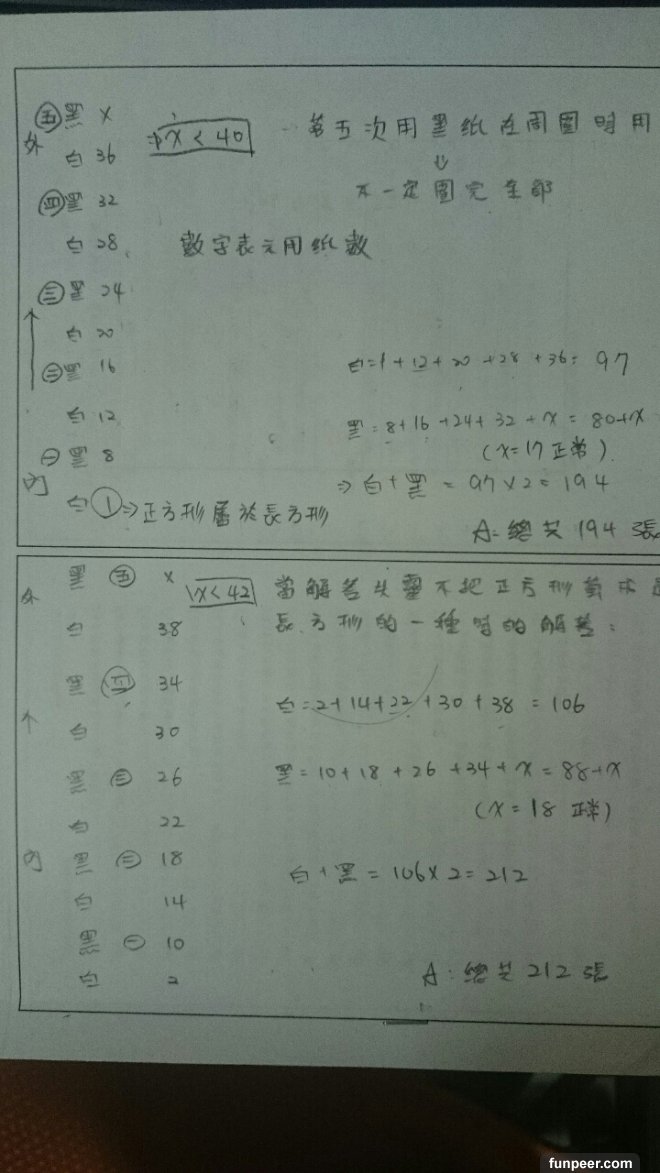 外 ㊄黑 x ⇒ x < 40 第五次用黑紙在周圍時用
白 36 ⇓
㊃黑 32 不一定圍完全部
白 28 數字表示用紙數
㊂黑 24
白 20
㊁黑 16 白=1+12+20+28+36=97
白 12 黑=8+16+24+32+x=80+x
㊀黑 8 (x=17正常)
⇒白+黑=97×2=194
內 白 ① ⇒正方形屬於長方形
A:總共194張
外 黑 ㊄ x x<42 當解答失靈不把正方形算成是
白 38 長方形的一種時的解答:
黑 ㊃ 34
白 30 白=2+14+22+30+38=106
黑 ㊂ 26 黑=10+18+26+34+x=88+x
白 22 (x=18正常)
內 黑 ㊁ 18 白+黑=106×2=212
白 14
黑 ㊀ 10
白 2 A:總共212張
funpeer.com